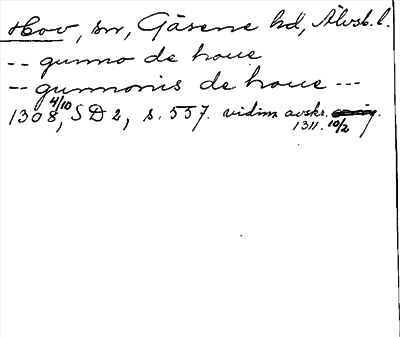 Hov, sn, Gäsene hd, Älvsb. l.
-- gunno de houe
-- gunnonis de houe ---
1308 4/10, SD 2, s. 557. vidim avskr.
1311. 10/2